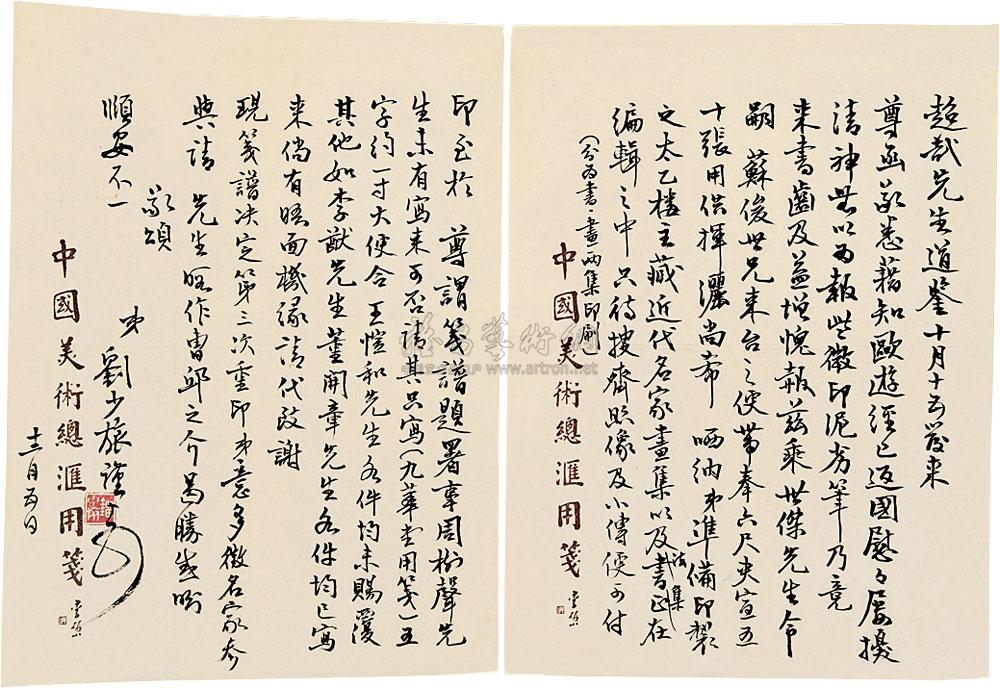 超哉先生道鑒十月十五發來
尊函敬悉藉知歐遊經已返國慰慰屢擾
清神無以為報些微印泥劣筆乃竟
來書齒及益增愧報茲乘世傑先生令
嗣 蘇俊世兄來台之便帶奉六尺夾宣五
十張用供揮灑尚希 哂納弟準備印製
之太乙楼主藏近代名家畫集以及書法集正在
編輯之中只待披齋照像及小傳便可付
(分為書·畫兩集印刷)
中國美術總滙用箋
印至於 尊謂箋譜題署事周樹聲先
生未有寫來可否請其只寫(九華堂用箋)五
字約一寸大便合王愷和先生各件均未賜覆
其他如李猷先生董開章先生各件均已寫
來倘有晤面機緣請代致謝
現箋譜決定第三次重印弟意多徵名家參
與請 先生略作曹邱之介曷勝感盼
敬頌
順安不一
弟劉少旅謹上
十二月五日
中國美術總滙用箋
www.artron.net